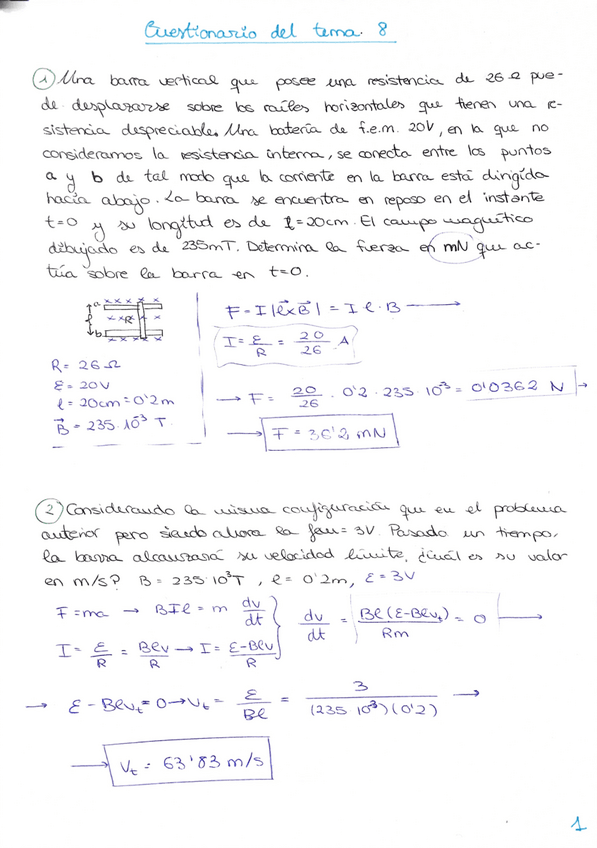 Cuestionario del tema 8
① Una barra vertical que posee una resistencia de 26 Ω pue-
de desplazarse sobre los raíles horizontales que tienen una re-
sistencia despreciable. Una batería de f.e.m. 20V, en la que no
consideramos la resistencia interna, se conecta entre los puntos
a y b de tal modo que la corriente en la barra está dirigida
hacia abajo. La barra se encuentra en reposo en el instante
t=0 y su longitud es de l=20cm. El campo magnético
dibujado es de 235mT. Determina la fuerza en mN que ac-
túa sobre la barra en t=0.
a x x x x x x
l x x R x x
b x x x x x x
R= 26 Ω
ε= 20V
l = 20cm = 0'2m
B⃗ = 235·10⁻³ T.
F = I |l⃗ x B⃗| = I l · B →
I = ε/R = 20/26 A
→ F = 20/26 · 0'2 · 235 · 10⁻³ = 0'0362 N →
→ F = 36'2 mN
② Considerando la misma configuración que en el problema
anterior pero siendo ahora la fem = 3V. Pasado un tiempo,
la barra alcanzará su velocidad límite, ¿cuál es su valor
en m/s? B = 235·10³T , l = 0'2m, ε = 3V
F = ma → BIl = m dv/dt
I = ε/R = Blv/R → I = ε-Blv/R
dv/dt = Bl(ε-Blvₜ)/Rm = 0 →
→ ε - Blvₜ = 0 → vₜ = ε/Bl = 3/(235 10³)(0'2) →
→ Vₜ = 63'83 m/s
1